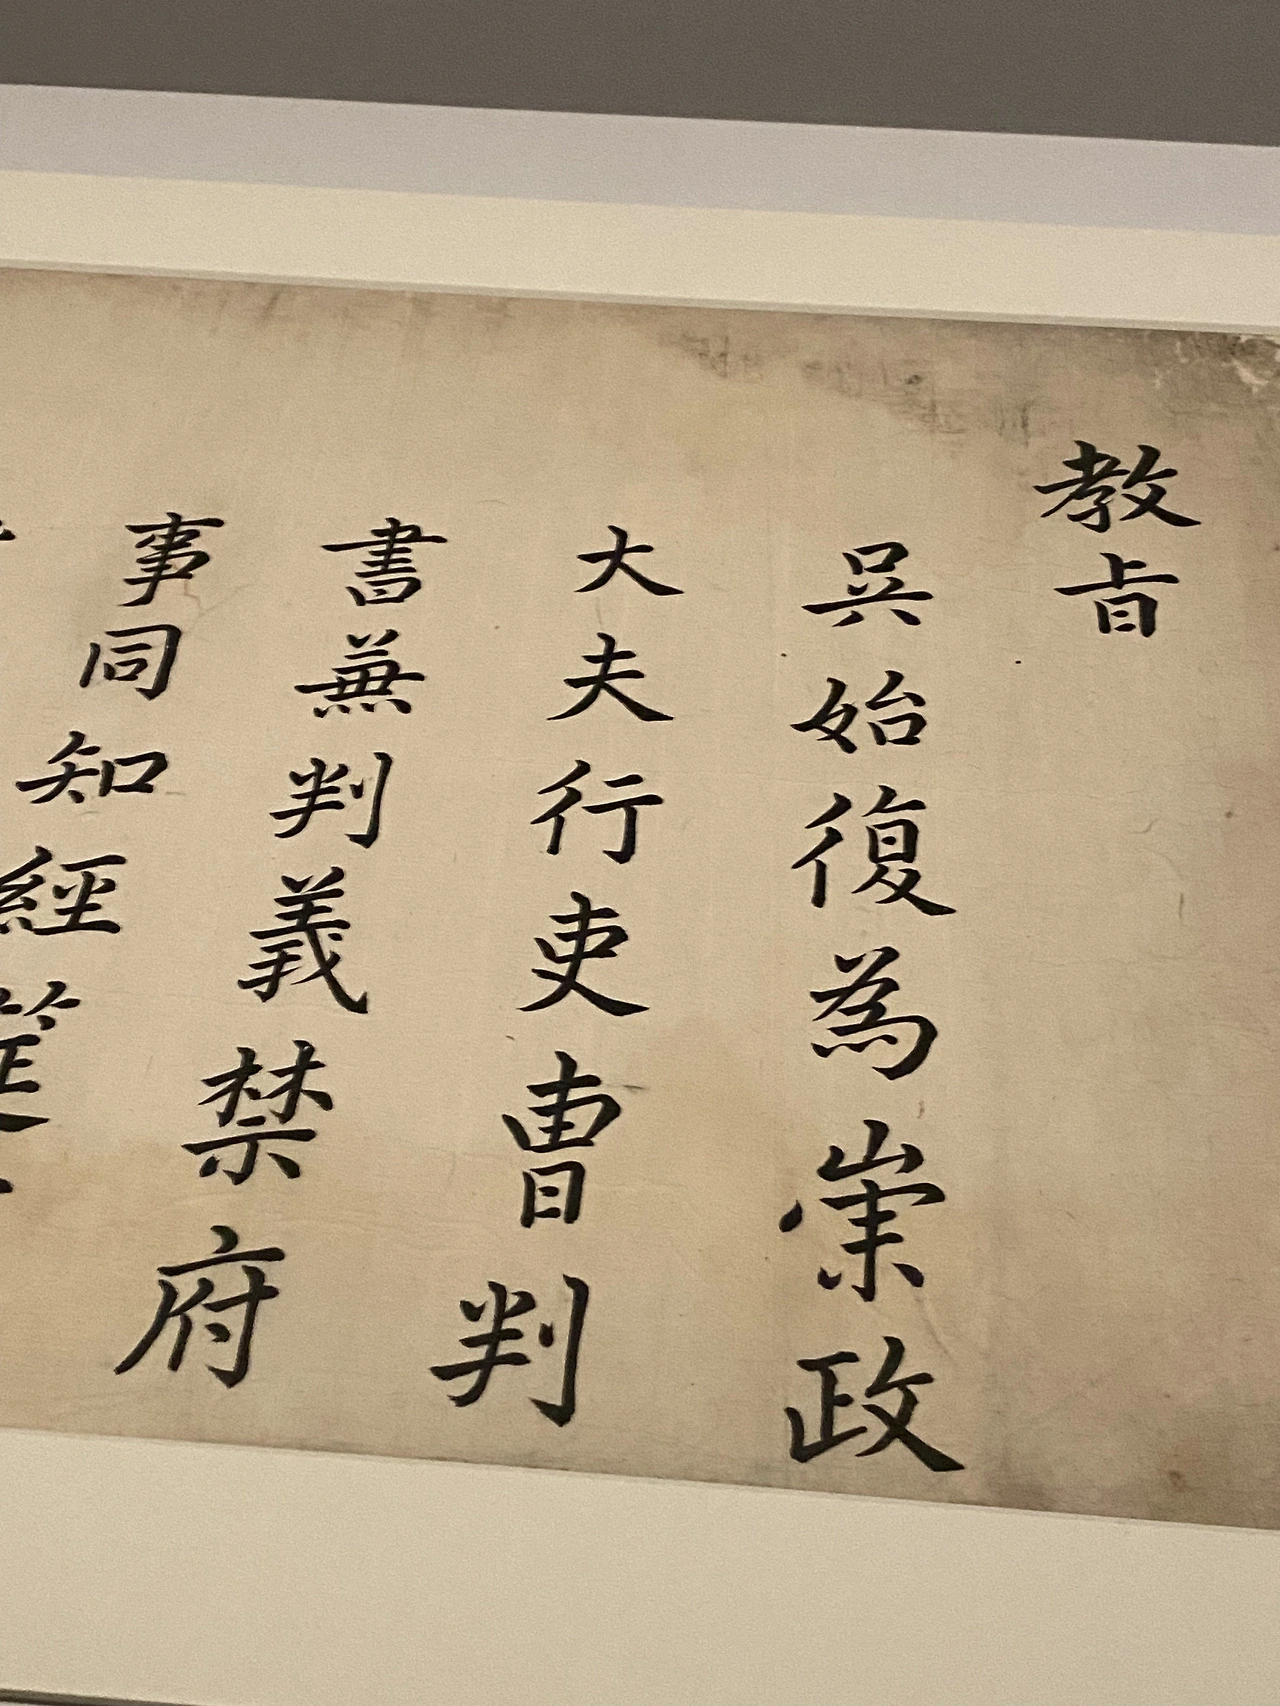 教旨
吳始復為崇政
大夫行吏曹判
書兼判義禁府
事同知經筵